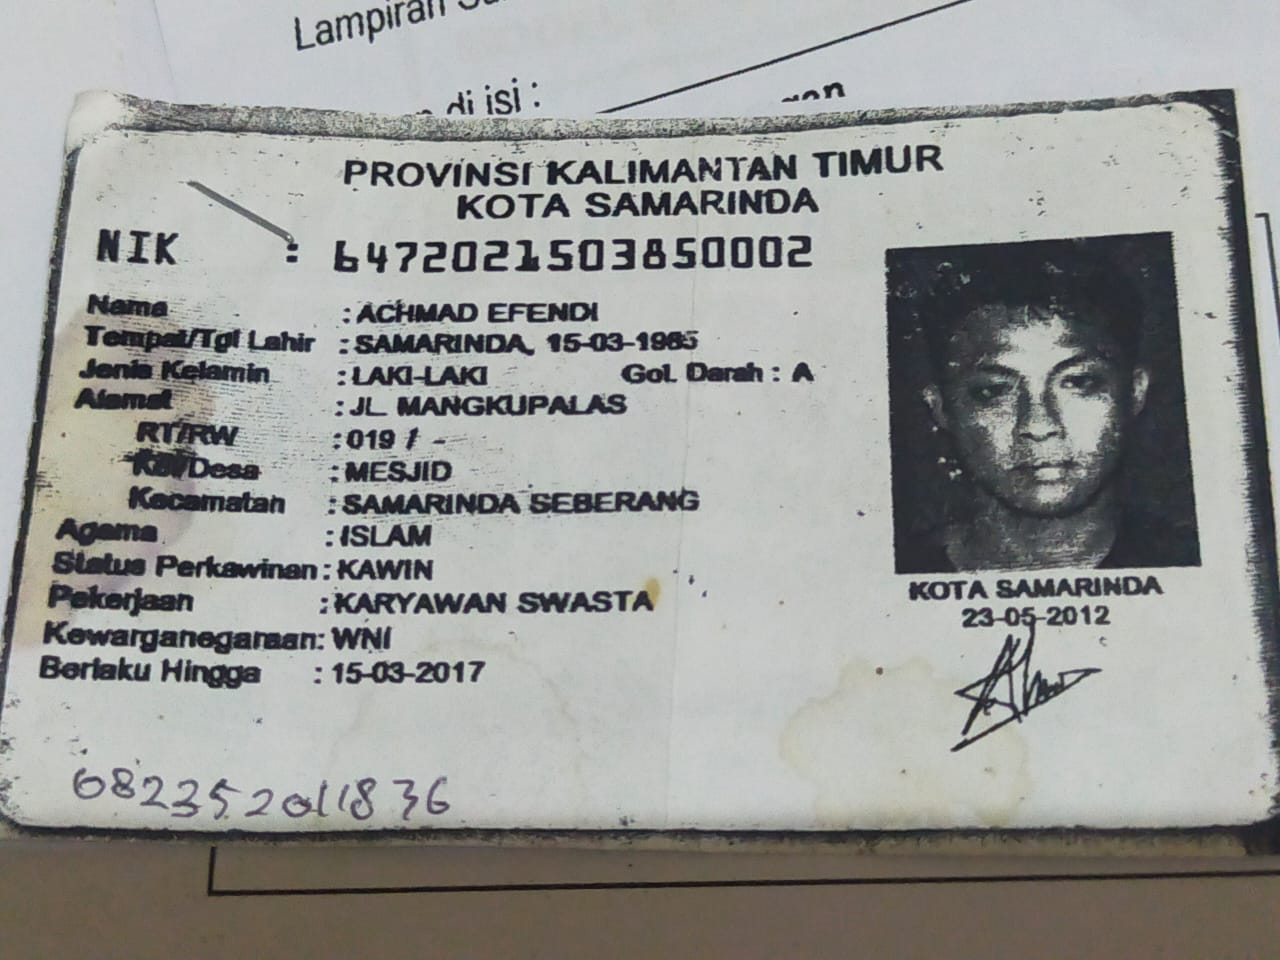 Lampiran
di isi :
PROVINSI KALIMANTAN TIMUR
KOTA SAMARINDA
NIK : 6472021503850002
Nama : ACHMAD EFENDI
Tempat/Tgl Lahir : SAMARINDA, 15-03-1985
Jenis Kelamin : LAKI-LAKI Gol. Darah : A
Alamat : JL. MANGKUPALAS
RT/RW : 019 / -
Kel/Desa : MESJID
Kecamatan : SAMARINDA SEBERANG
Agama : ISLAM
Status Perkawinan : KAWIN
Pekerjaan : KARYAWAN SWASTA
Kewarganegaraan : WNI
Berlaku Hingga : 15-03-2017
KOTA SAMARINDA
23-05-2012
082352011836